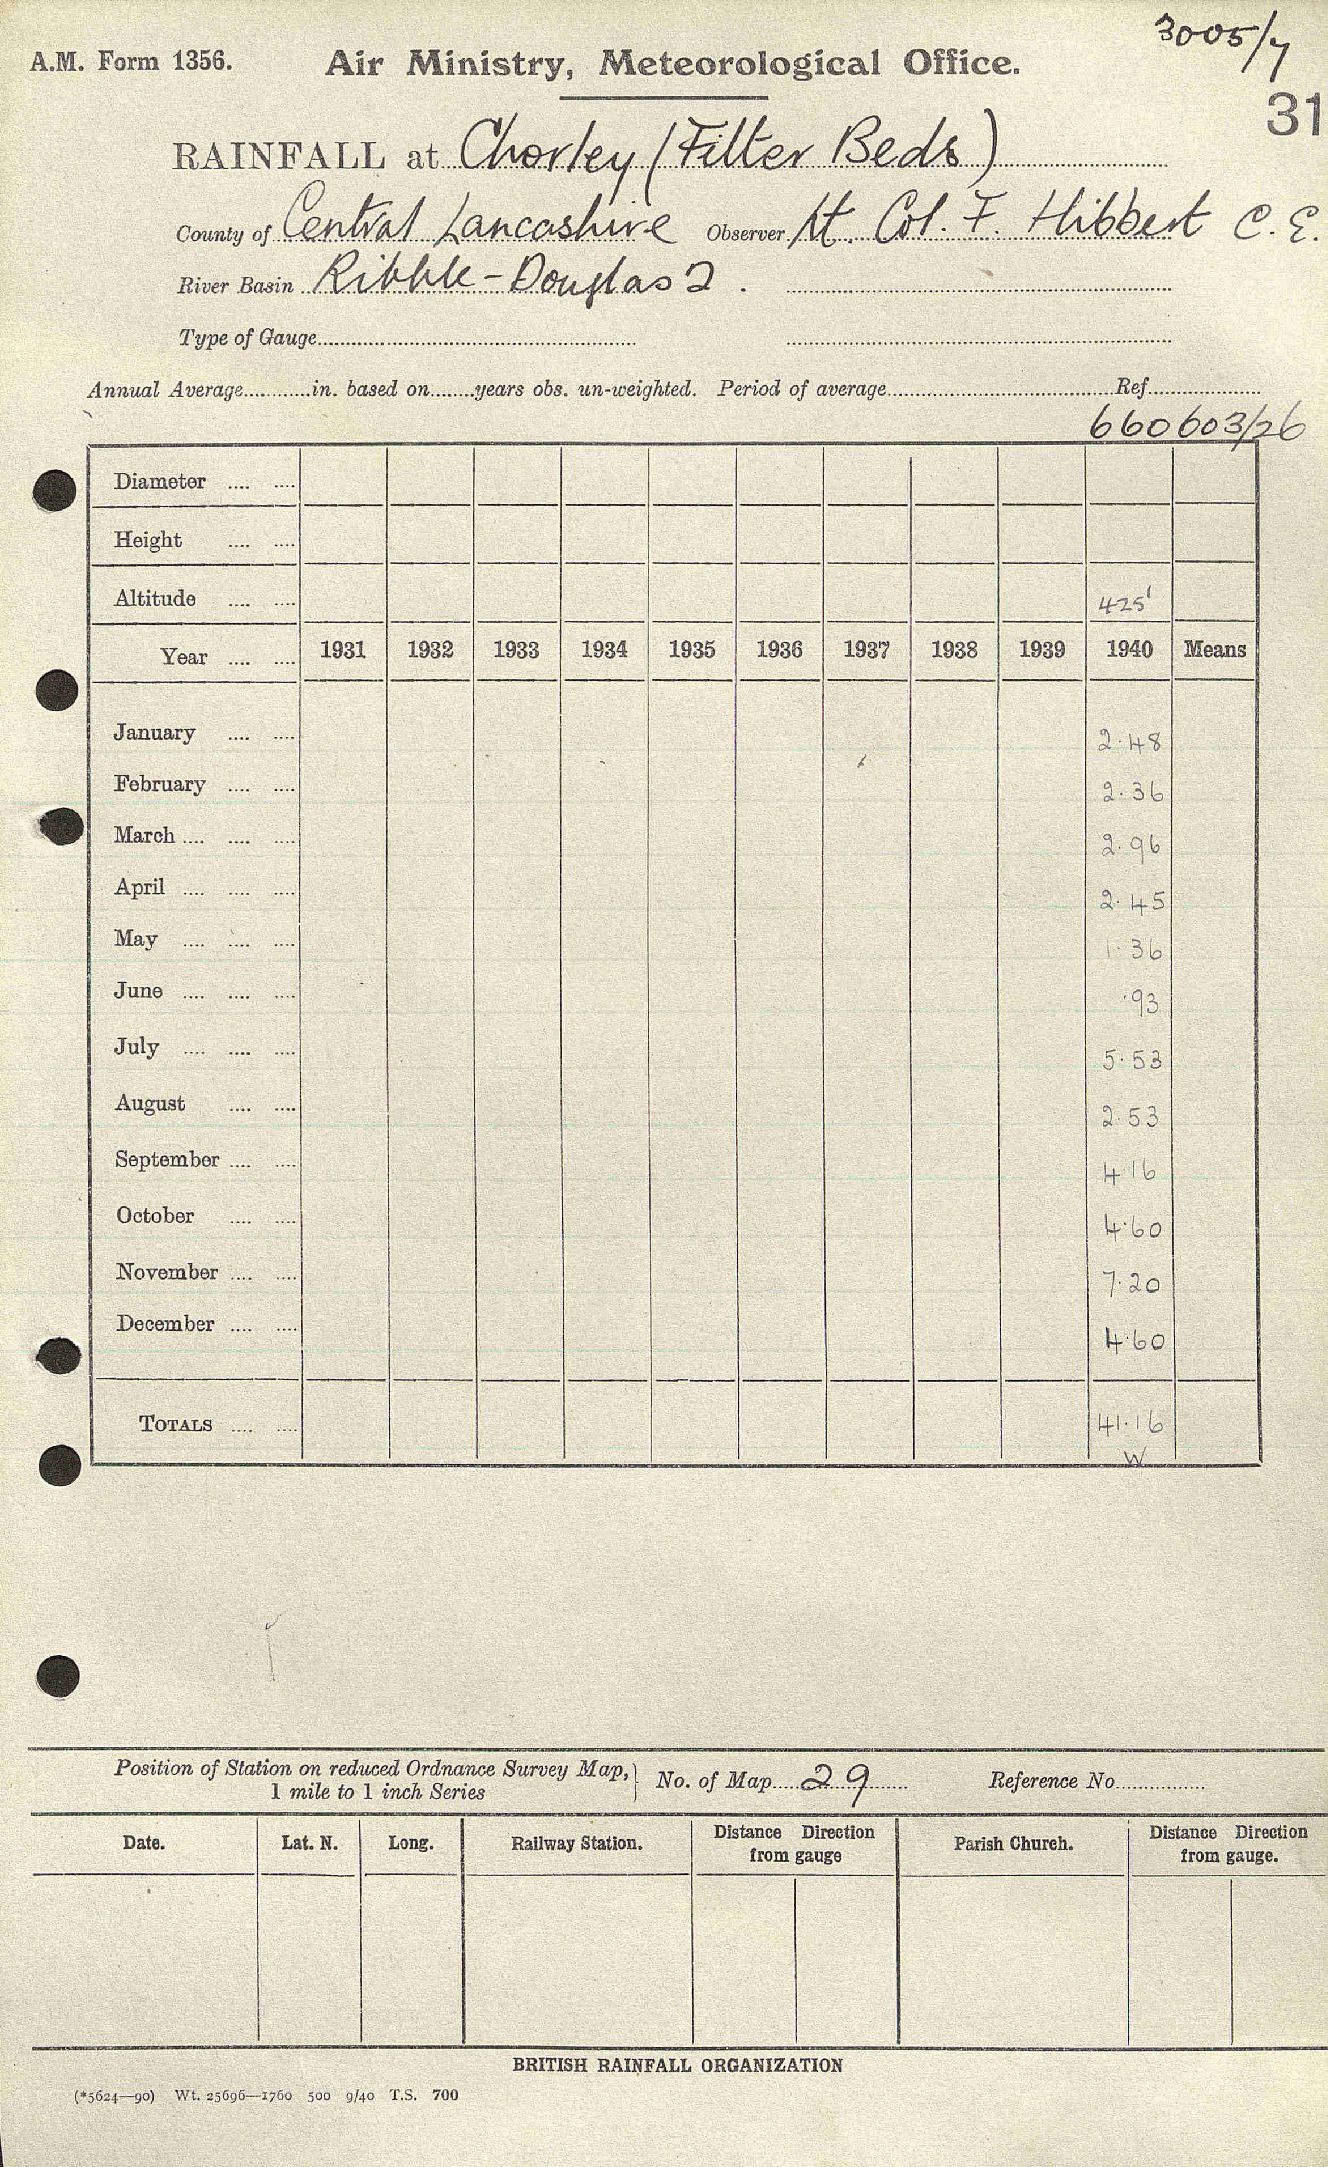 3005/7
A.M. Form 1356. Air Ministry, Meteorological Office.
31
RAINFALL at Chorley (Filter Beds)
County of Central Lancashire Observer Lt. Col. F. Hibbert C.E.
River Basin Ribble - Douglas 2 .
Type of Gauge
Annual Average............in. based on........years obs. un-weighted. Period of average............Ref............
660603/26
Diameter .... ....
Height .... ....
Altitude .... .... 425'
Year .... .... 1931 1932 1933 1934 1935 1936 1937 1938 1939 1940 Means
January .... .... 2.48
February .... .... 2.36
March .... .... .... 2.96
April .... .... .... 2.45
May .... .... .... 1.36
June .... .... .... .93
July .... .... .... 5.53
August .... .... 2.53
September .... .... 4.16
October .... .... 4.60
November .... .... 7.20
December .... .... 4.60
TOTALS .... .... 41.16
W
Position of Station on reduced Ordnance Survey Map, } No. of Map 29 Reference No.
1 mile to 1 inch Series
Date. Lat. N. Long. Railway Station. Distance Direction from gauge Parish Church. Distance Direction from gauge.
BRITISH RAINFALL ORGANIZATION
(*5624—90) Wt. 25696—1760 500 9/40 T.S. 700